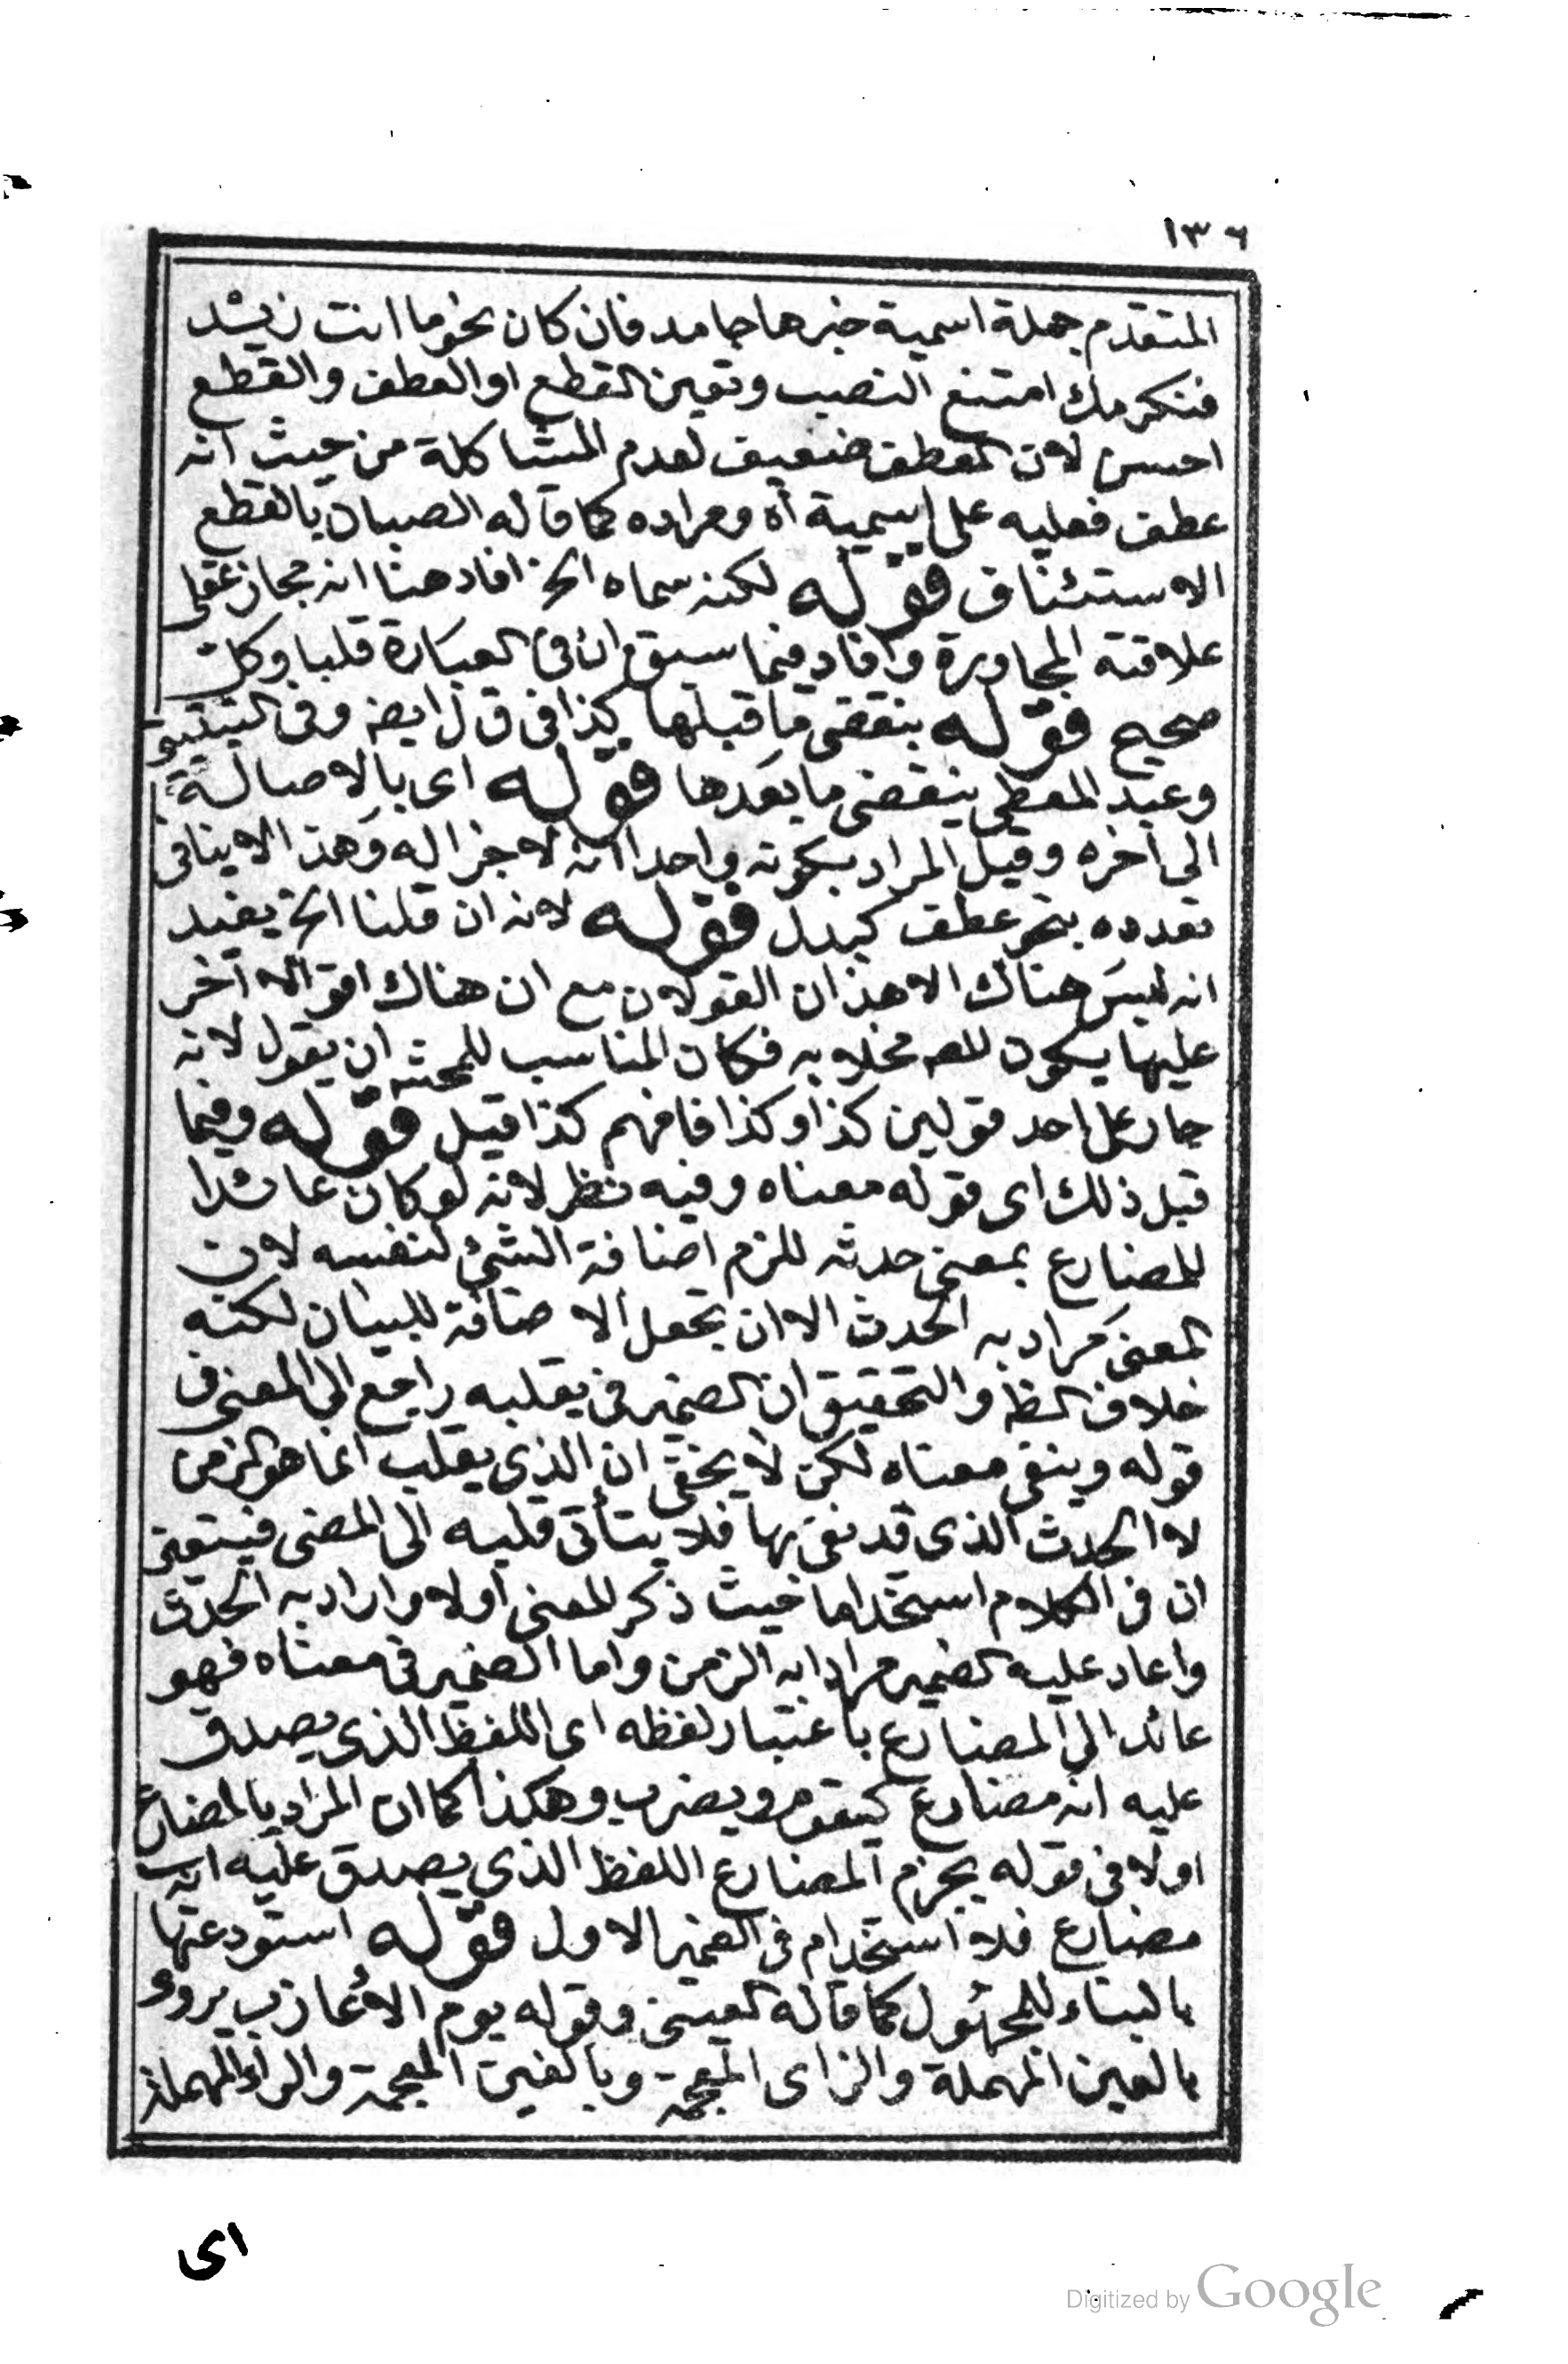 ١٣٦
المتقدم جملة اسمية خبرها جامد فان كان نحو ما انت زيد
فنكرمك امتنع النصب وتعين القطع او العطف والقطع
احسن لان العطف ضعيف لعدم المشاكلة من حيث انه
عطف فعليه على اسمية اه ومراده كما قاله الصبان بالقطع
الاستئناف قوله لكنه سماه الخ افاد هنا انه مجاز عقلى
علاقته المجاورة وافاد فيما سبق ان فى العبارة قلبا وكل
صحيح قوله بنقضى ما قبلها كذا فى ق ل ايضا وفى
وعبد المعطى ينقضى ما بعدها قوله اى بالاصالة
الى آخره وقيل المراد بكونه واحدا انه لا جزا له وهذا لا ينافى
تعدده بنحو عطف كبدل قوله لانه ان قلنا الخ يفيد
انه ليس هناك الا هذان القولان مع ان هناك اقوالا آخر
عليها يكون المص مخلا به فكان المناسب للمحشى ان يقول لانه
جار على احد قولين كذا وكذا فافهم كذا قيل قوله وفيما
قبل ذلك اى قوله معناه وفيه نظر لانه لو كان عائدا
للمضارع بمعنى حدثه للزم اضافة الشئ لنفسه لان
المعنى مراد به الحدث الا ان تجعل الاضافة للبيان لكنه
خلاف الظ والتحقيق ان الضمير فى يقلبه راجع الى المعنى فى
قوله وينفى معناه لكن لا يخفى ان الذى يقلب انما هو الزمن
لا الحدث الذى قد نفى بها فلا يتأتى قلبه الى المضى فيتعين
ان فى الكلام استخداما حيث ذكر المعنى اولا واراد به الحدث
واعاد عليه الضمير مرادا به الزمن واما الضمير فى معناه فهو
عائد الى المضارع باعتبار لفظه اى اللفظ الذى يصدق
عليه انه مضارع كيقوم ويضرب وهكذا كما ان المراد بالمضارع
اولا فى قوله يجزم المضارع اللفظ الذى يصدق عليه انه
مضارع فلا استخدام فى الضمير الاول قوله استودعتها
بالبناء للمجهول كما قاله العينى وقوله يوم الأعازب يروى
بالعين المهملة والزاى المعجمة وبالغين المعجمة والراء المهملة
اى
Digitized by Google